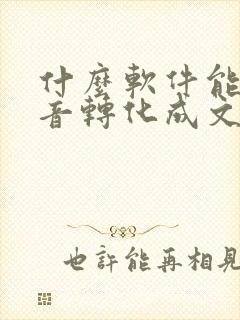 什麼軟件能
音轉化成文
也許能再相見